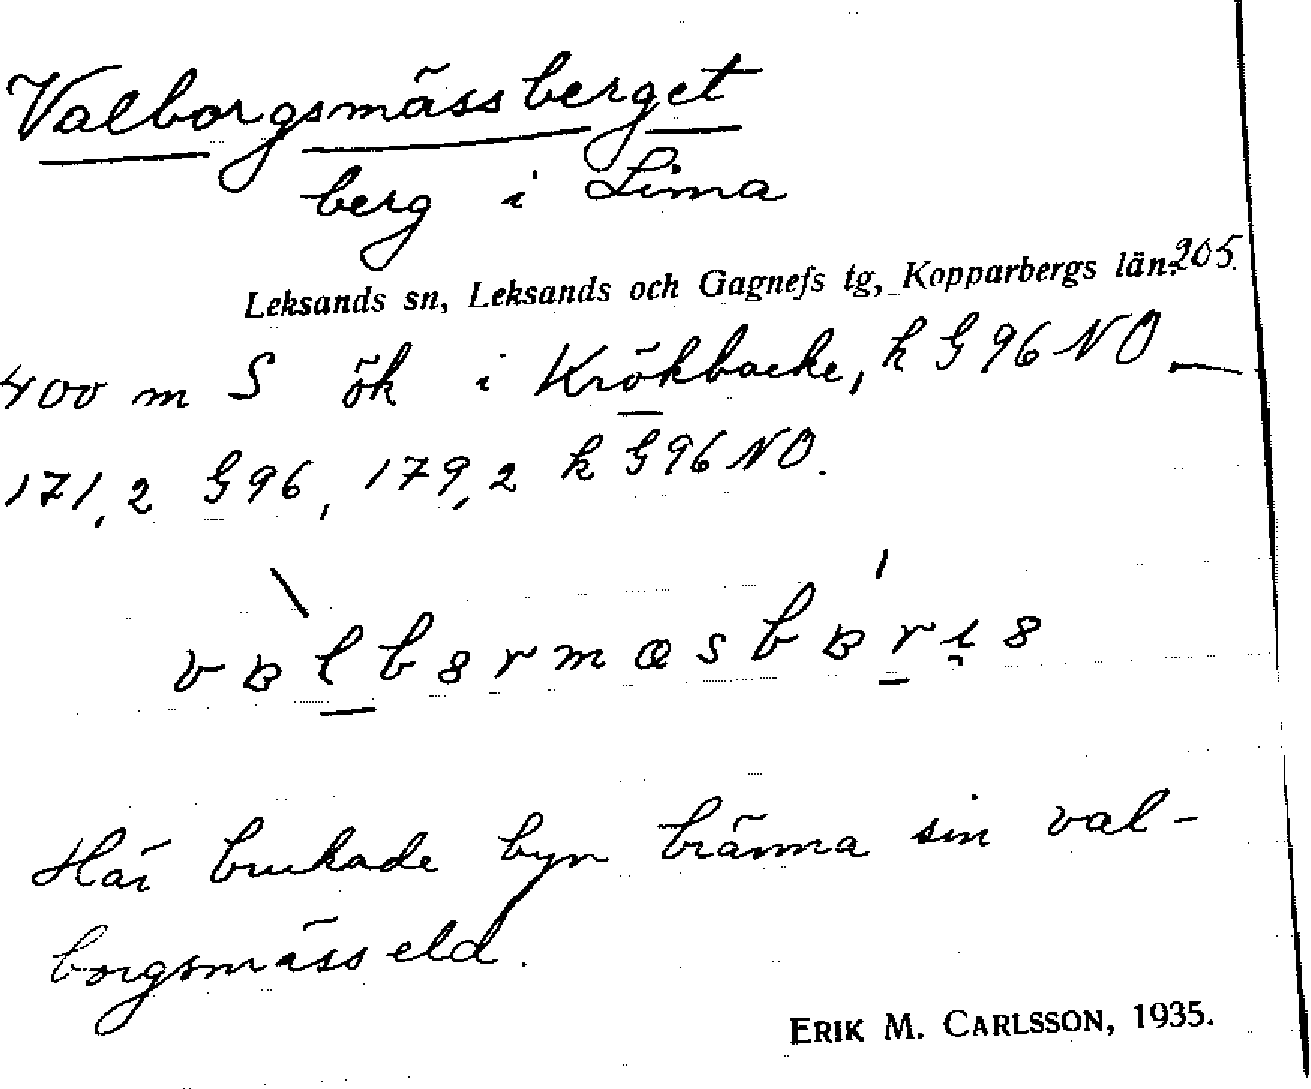 Valborgsmässberget
berg i Lima
Leksands sn, Leksands och Gagnefs tg, Kopparbergs län. 205.
400 m S ök i Krökbacke, k G 96 NO —
171,2 G 96, 179,2 k G 96 NO.
Här brukade byn bränna sin val-
borgsmässeld.
ERIK M. CARLSSON, 1935.